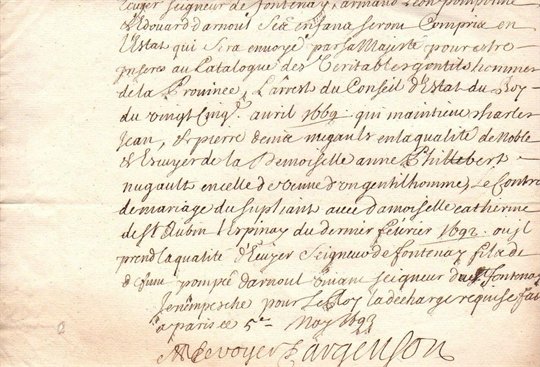 Ecuyer seigneur de fontenay, armand Leon pomponne
& Edouard darnoul ses enfans seront Compris en
l'Estat qui sera envoyé par sa Majesté pour estre
jnseres au Catalogue des Veritables gentilshommes
de la Province, L'arrest du Conseil d'Estat du Roy
du vingt Cinq avril 1669 qui maintient Charles
Jean, & pierre denis nugault en la qualité de Noble
& Escuyer & la Demoiselle anne Phillebert
nugault en celle de veuve d'un gentilhomme, Le Contract
de mariage du supliant avec damoiselle catherine
de St Aubin Erpinay du dernier février 1692 ou jl
prend la qualité d'Ecuyer Seigneur de fontenay fils de
pompée darnoul vivant seigneur de fontenay
Je n'empesche pour Le Roy la decharge requise fait
a paris ce 5e May 1693
M De voyer D'argenson